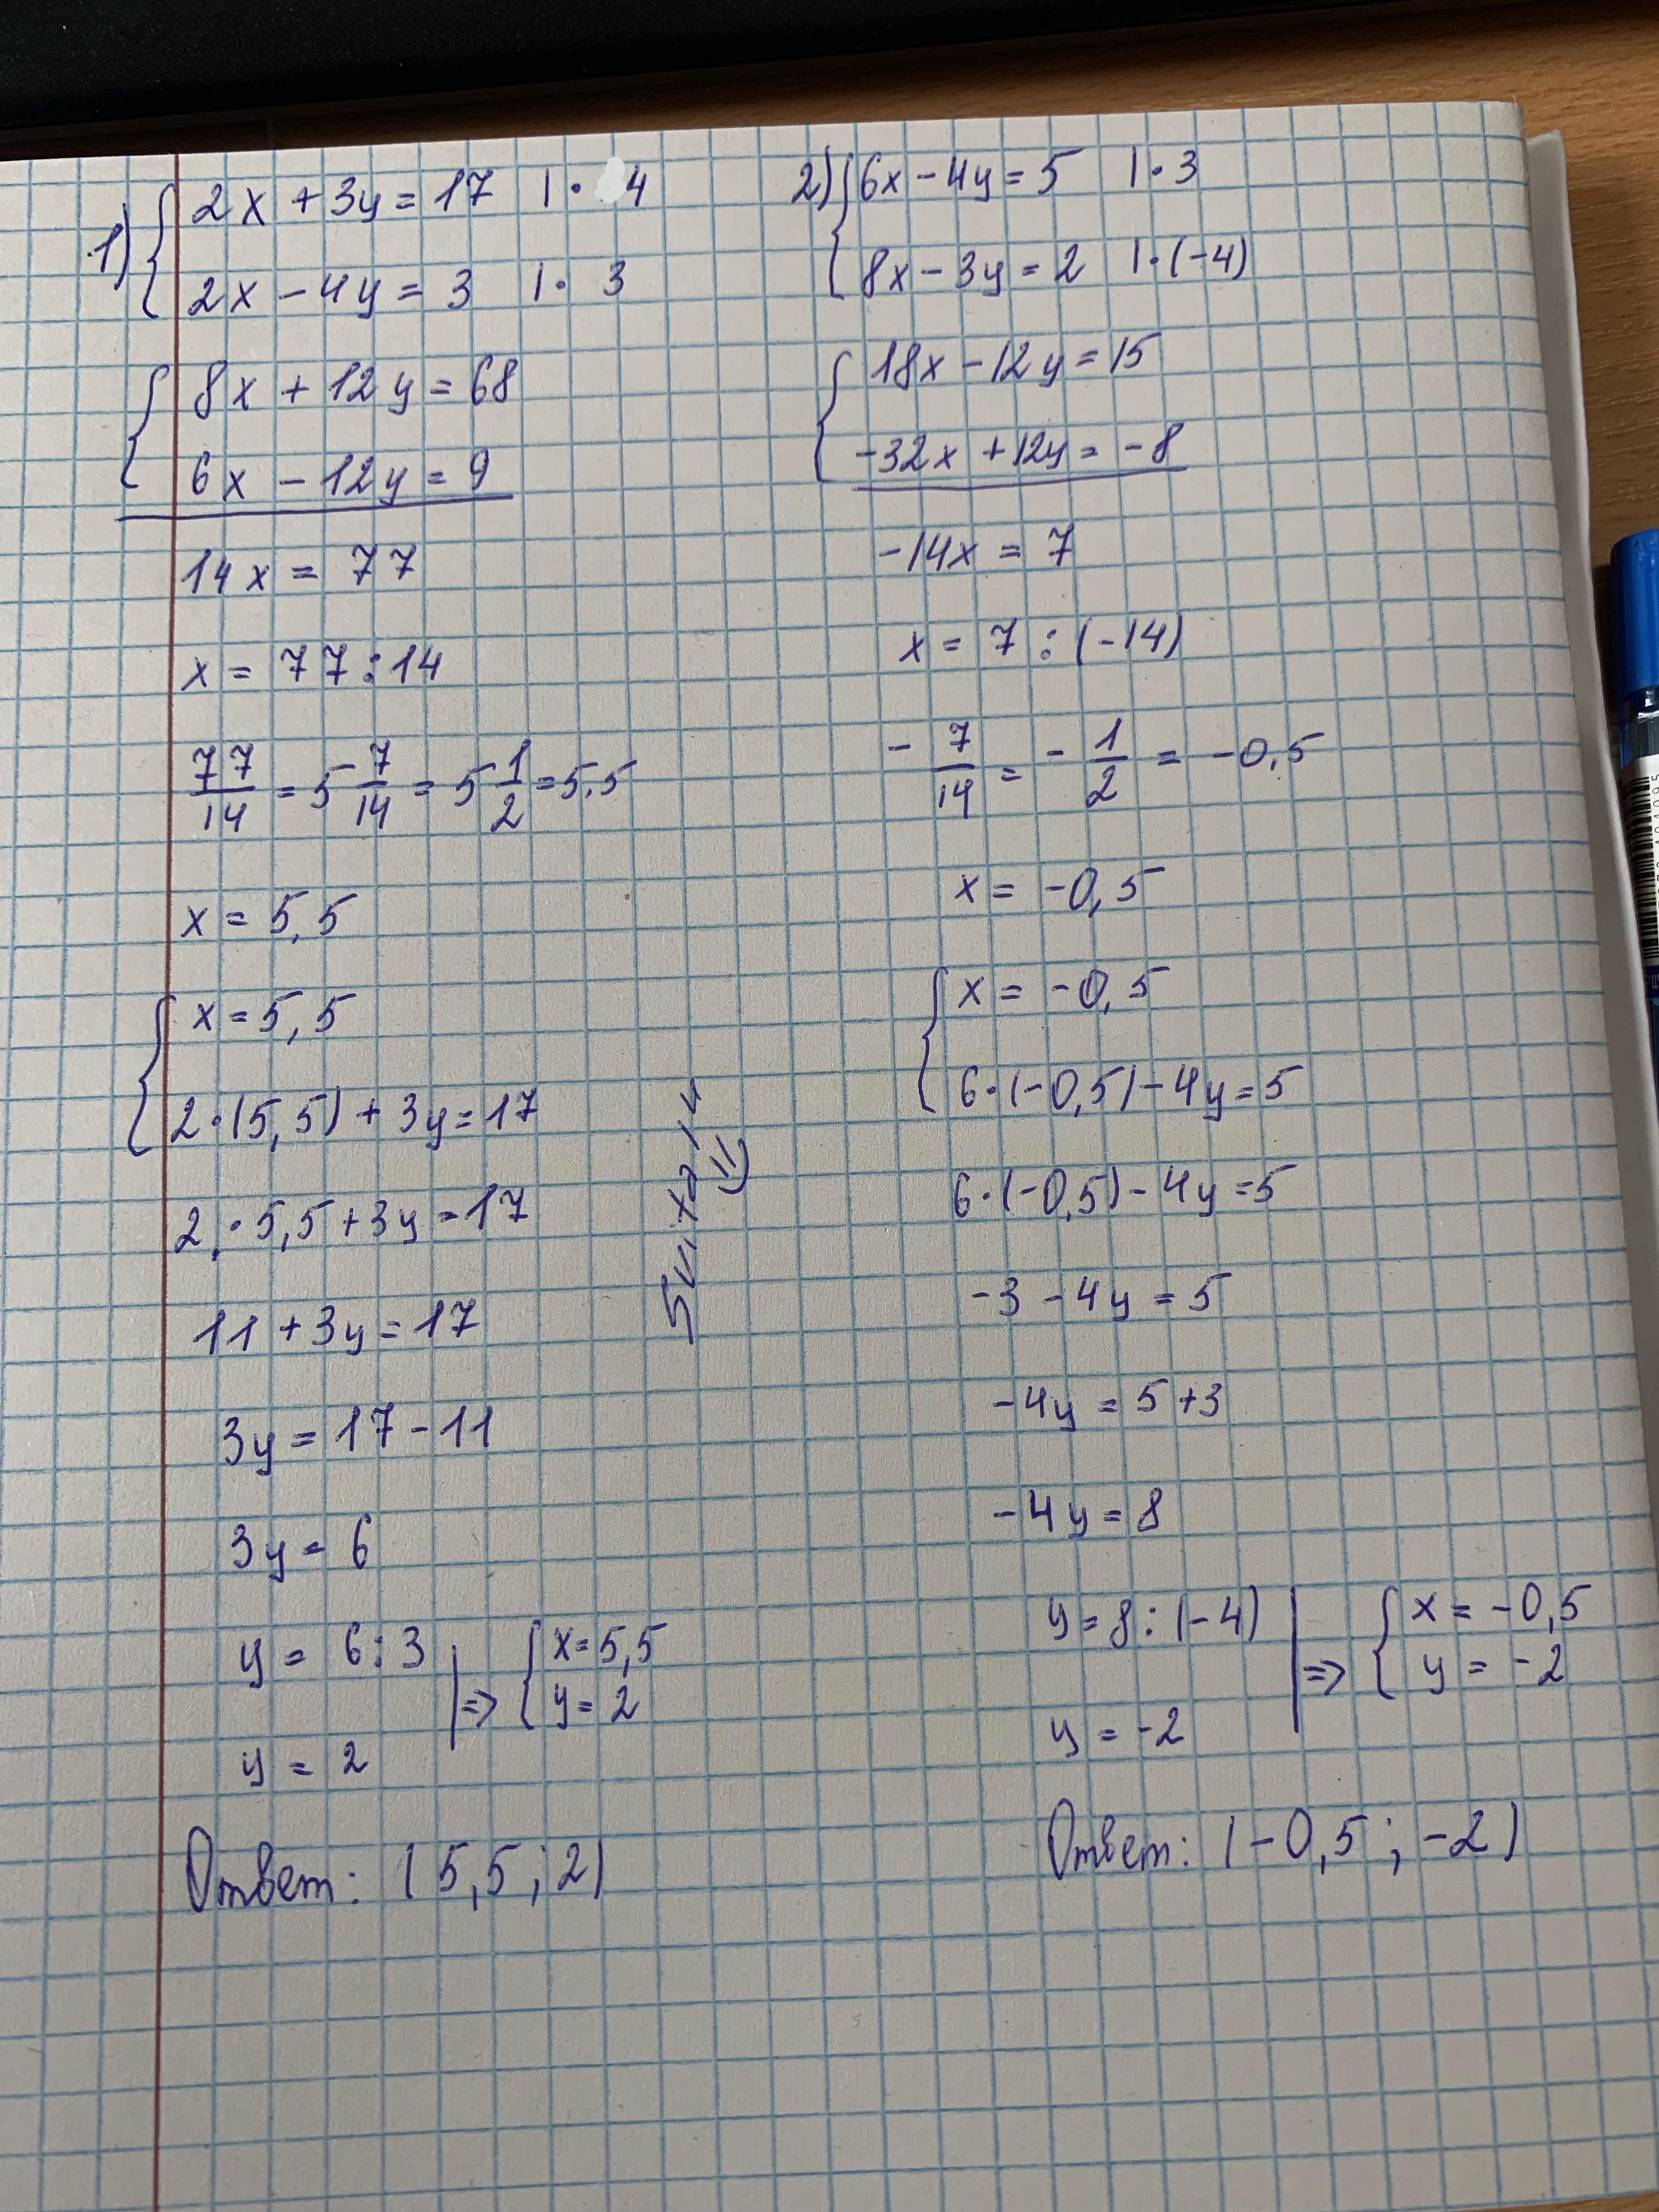 1) { 2x + 3y = 17 | · 4
2x - 4y = 3 | · 3
{ 8x + 12y = 68
6x - 12y = 9
14x = 77
x = 77 : 14
77/14 = 5 7/14 = 5 1/2 = 5,5
x = 5,5
{ x = 5,5
2 · (5,5) + 3y = 17
2 · 5,5 + 3y = 17
11 + 3y = 17
3y = 17 - 11
3y = 6
y = 6 : 3 | => { x = 5,5
y = 2
y = 2
Ответ: (5,5 ; 2)
2) { 6x - 4y = 5 | · 3
8x - 3y = 2 | · (-4)
{ 18x - 12y = 15
-32x + 12y = -8
-14x = 7
x = 7 : (-14)
- 7/14 = - 1/2 = -0,5
x = -0,5
{ x = -0,5
6 · (-0,5) - 4y = 5
6 · (-0,5) - 4y = 5
-3 - 4y = 5
-4y = 5 + 3
-4y = 8
y = 8 : (-4) | => { x = -0,5
y = -2
y = -2
Ответ: (-0,5 ; -2)